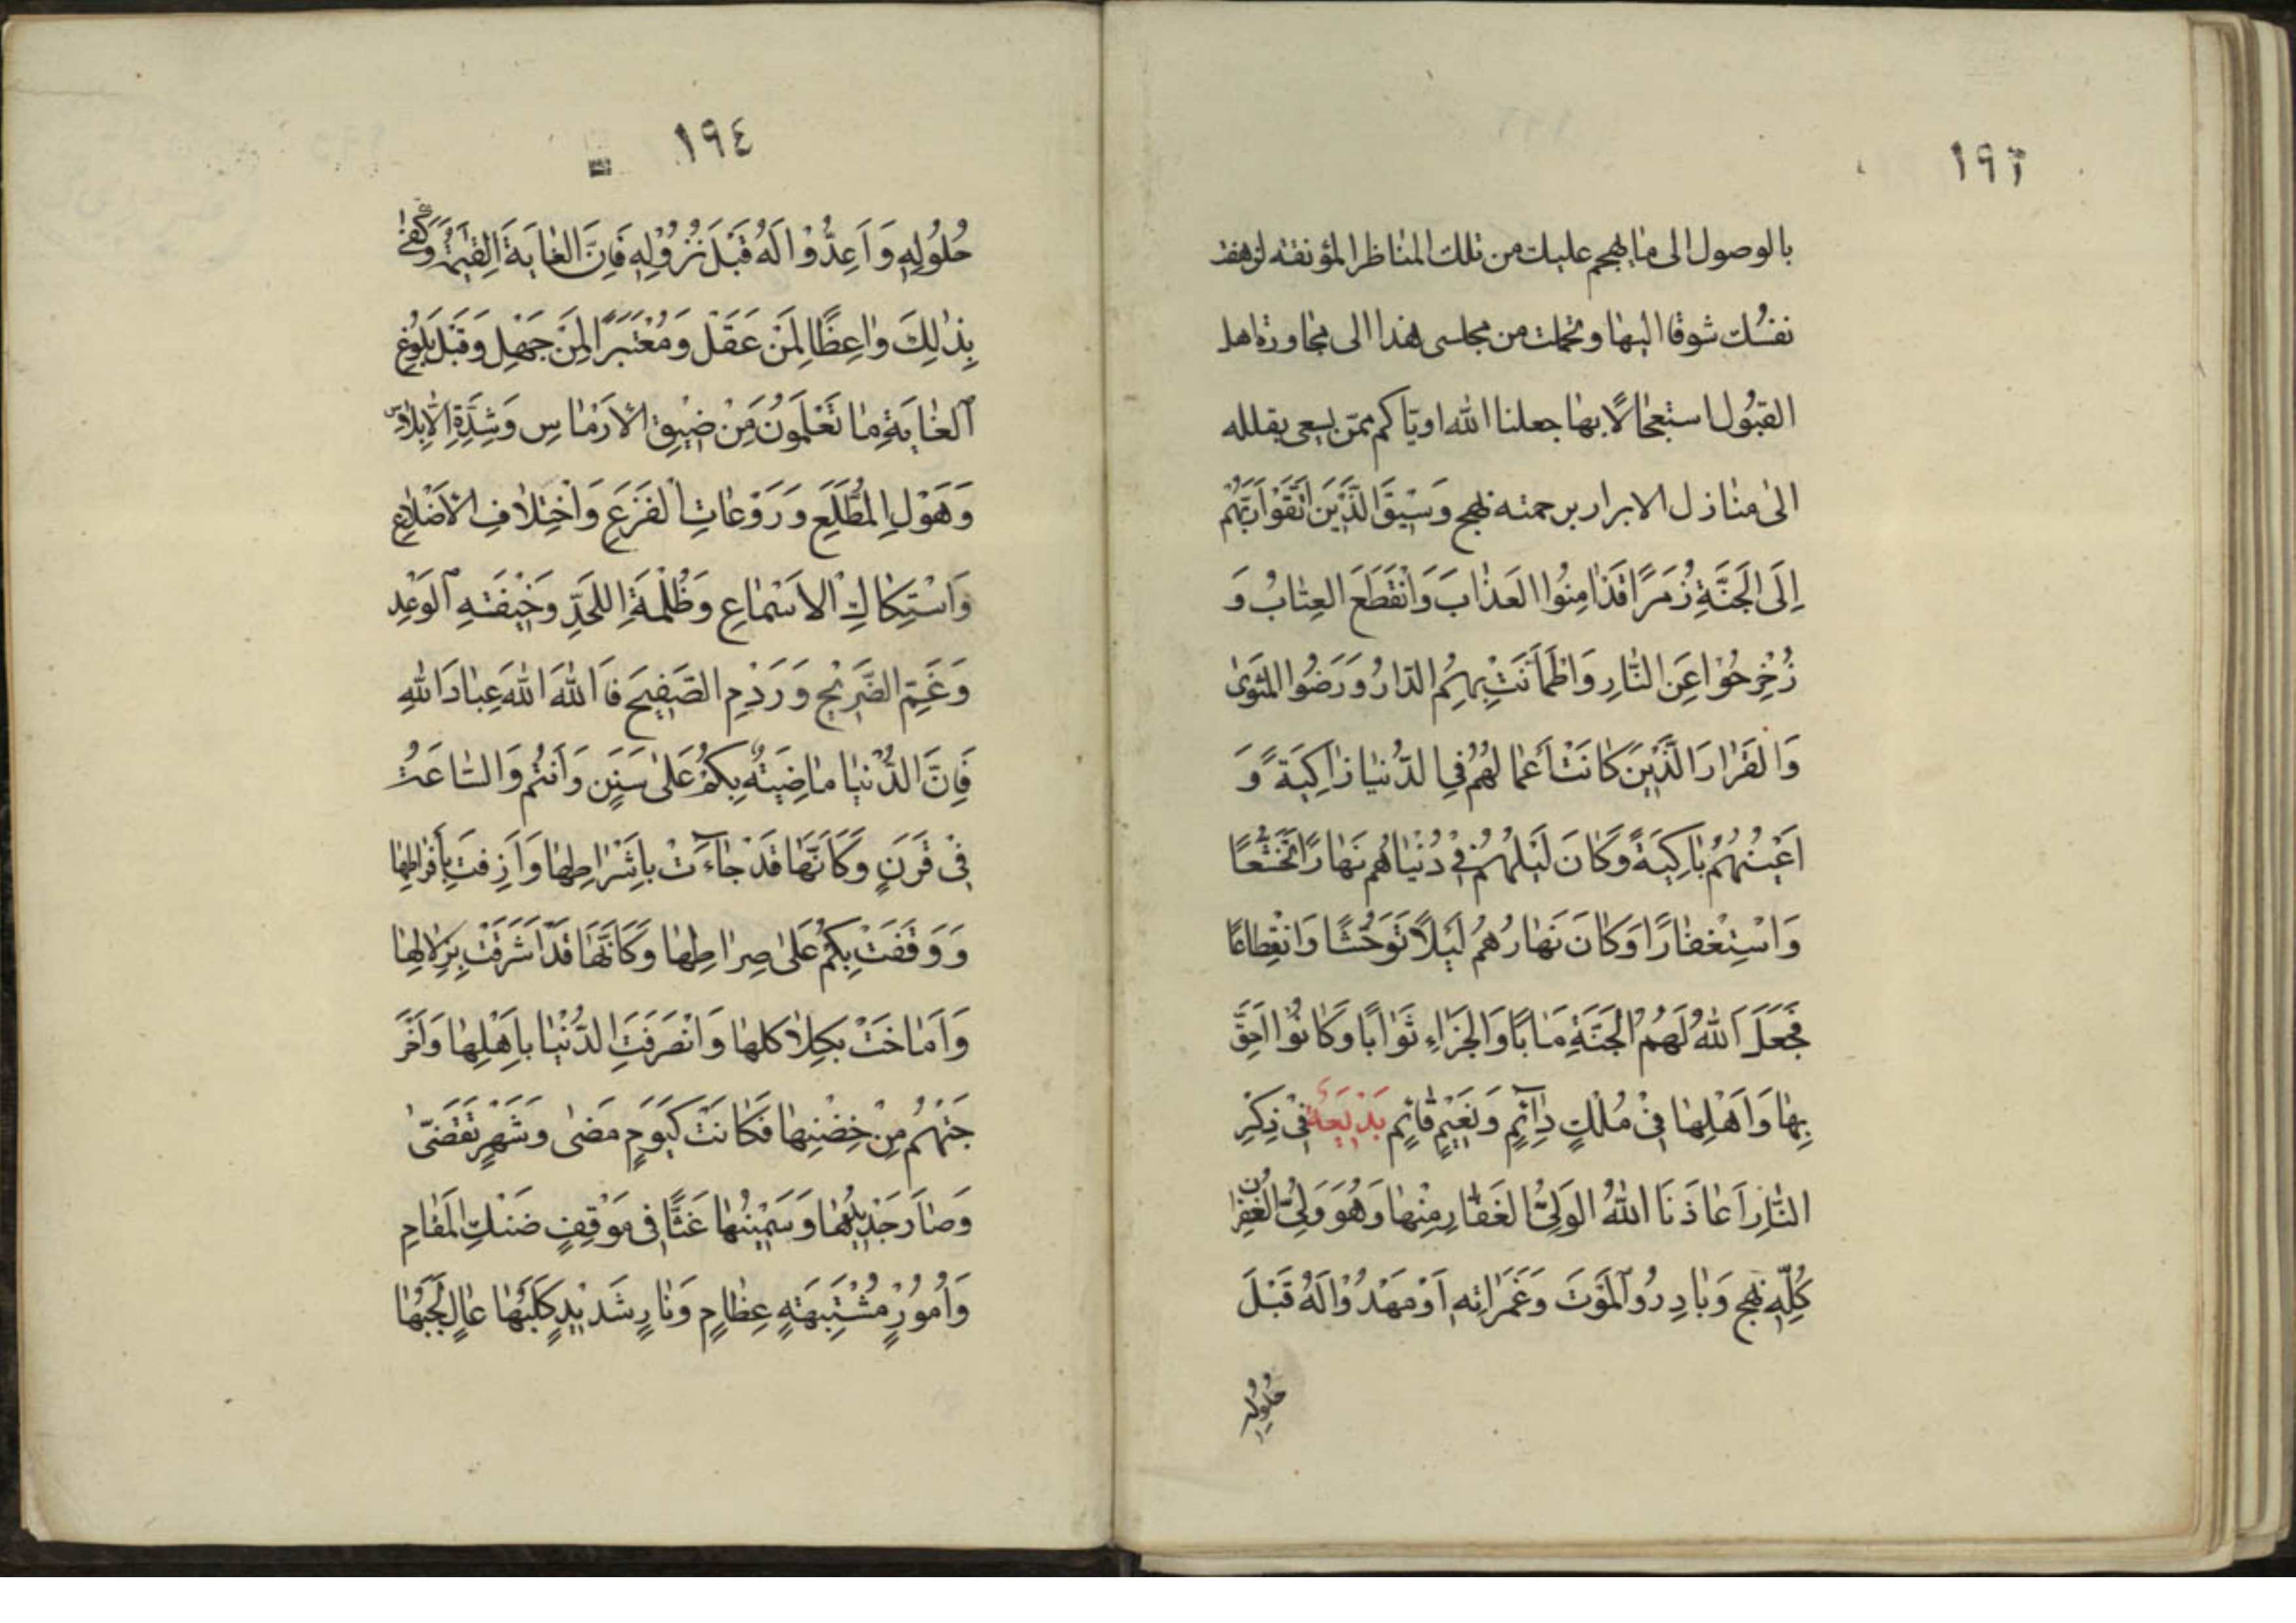 ١٩٣
بالوصول الى ما يهجم عليك من تلك المناظر المؤنقة لزهقت
نفسك شوقا اليها وتحملت من مجلسى هذا الى مجاورة اهل
القبُول استعجالًا بها جعلنا الله اويّاكم ممّن يسعى بقلله
الىٰ منازل الابرار برحمته نهج وَسِيْقَ الَّذِيْنَ اتَّقَوْا رَبَّهُم
اِلَى الجَنَّةِ زُمَرًا قَدْ اَمِنُوا العَذابَ وَانْقَطَعَ العِتابُ وَ
زُحْزِحُوْا عَنِ النّارِ وَاطْمَاَنَّتْ بِهِمُ الدّارُ وَرَضُوا المَثْوىٰ
وَالقَرٰارَ الَّذِيْنَ كانَتْ أَعمالُهُمْ فِي الدّنيا زاكِيَةً وَ
اَعْيُنُهُمْ باكِيَةً وَكانَ لَيْلُهُمْ فِي دُنْياهُم نَهارًا تَخَشُّعًا
وَاسْتِغْفارًا وَكانَ نَهارُهُمْ لَيْلًا تَوَحُّشًا وَانْقِطاعًا
فَجَعَلَ اللهُ لَهُمُ الجَنَّةِ مَابًا وَالجَزاءِ ثَوابًا وَكانُوْا اَحَقَّ
بِها وَاَهْلِها فِيْ مُلْكٍ دائِمٍ وَنَعِيْمٍ قائِمٍ بَدِيْعَة فِيْ ذِكْرِ
النّارِ اَعاذَنَا اللهُ الوَلِيُّ الغَفّارِ مِنْها وَهُوَ وَلِيُّ الغُفْرن
كُلِّهِ نهج وَبادِرُو المَوْتَ وَغَمَراتِهِ اَوْمَهْدُوْا لَهُ قَبْلَ
حُلُوْلِهِ
١٩٤
حُلُولِهِ وَاَعِدُّوْا لَهُ قَبْلَ نُزُوْلِهِ فَاِنَّ الغايَةَ القِيٰمَةُ وَكَفىٰ
بِذٰلِكَ واعِظًا لِمَنْ عَقَلَ وَمُعْتَبَرًا لِمَنْ جَهِلَ وَقَبْلَ بُلُوْغِ
الغايَةِ ما تَعْلَمُونَ مِنْ ضِيْقِ الاَرْماسِ وَشِدَّةِ الاِبْلاسِ
وَهَوْلِ المُطَّلَعِ وَرَوْعاتِ الْفَزَعِ وَاخْتِلافِ الاَضْلاعِ
وَاسْتِكاكِ الاَسْماعِ وَظُلْمَةِ اللَحْدِ وَخِيْفَتِهِ الوَعْدِ
وَغَمِّ الضَّرِيْحِ وَرَدْمِ الصَّفِيحِ فَاللهَ اللهَ عِبادَ اللهِ
فَاِنَّ الدُّنيا ماضِيَتهٌ بِكُمْ عَلىٰ سَنَنٍ وَاَنتُم وَالسّاعَتُ
فِيْ قَرَنٍ وَكَاَنَّها قَدْ جاءَتْ باَشْراطِها وَاَزِفَتْ بِأَفْراطِها
وَوَقَفَتْ بِكُمْ عَلىٰ صِراطِها وَكَاَنَّها قَدْ اَشْرَفَتْ بِزَلازِلِها
وَاَناخَتْ بِكَلاكِلها وَانْصَرَفَتِ الدُّنْيا باَهْلِها وَاَخْرَ
جَتْهُمْ مِنْ حِضْنِها فَكانَتْ كَيَوْمٍ مَضىٰ وَشَهْرٍ تَقَضّىٰ
وَصارَ جَدِيْدُها وَسَمِيْنُها غَثًّا فِي مَوْقِفٍ ضَنْكِ المَقامِ
وَاُمُوْرٍ مُشْتَبِهَتِهٍ عِظامٍ وَنارٍ شَدِيْدٍ كَلَبُها عالٍ لَجَبُها